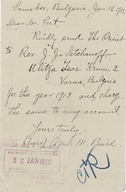 Samokov, Bulgaria, Jan 16, 1913
Dear Mr. Peet
Kindly send The Orient
to Rev.
Ulitza Tsar Krum, 2
Varna, Bulgaria
for the year 1913 and charge
the same to my account.
Yours truly,
22 JAN 1913